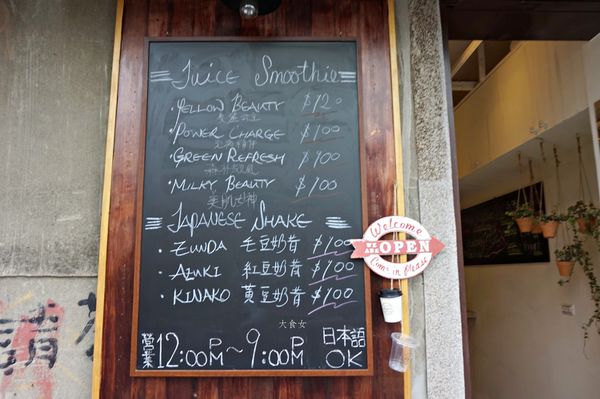 Juice Smoothie
· YELLOW BEAUTY $120
· POWER CHARGE $100
· GREEN REFRESH $100
· MILKY BEAUTY $100
美肌女神
JAPANESE SHAKE
· ZUNDA 毛豆奶昔 $100
· AZUKI 紅豆奶昔 $100
· KINAKO 黃豆奶昔 $100
大食女
營業 12:00PM~9:00PM 日本語 OK
Welcome
WE ARE OPEN
Come in Please
請